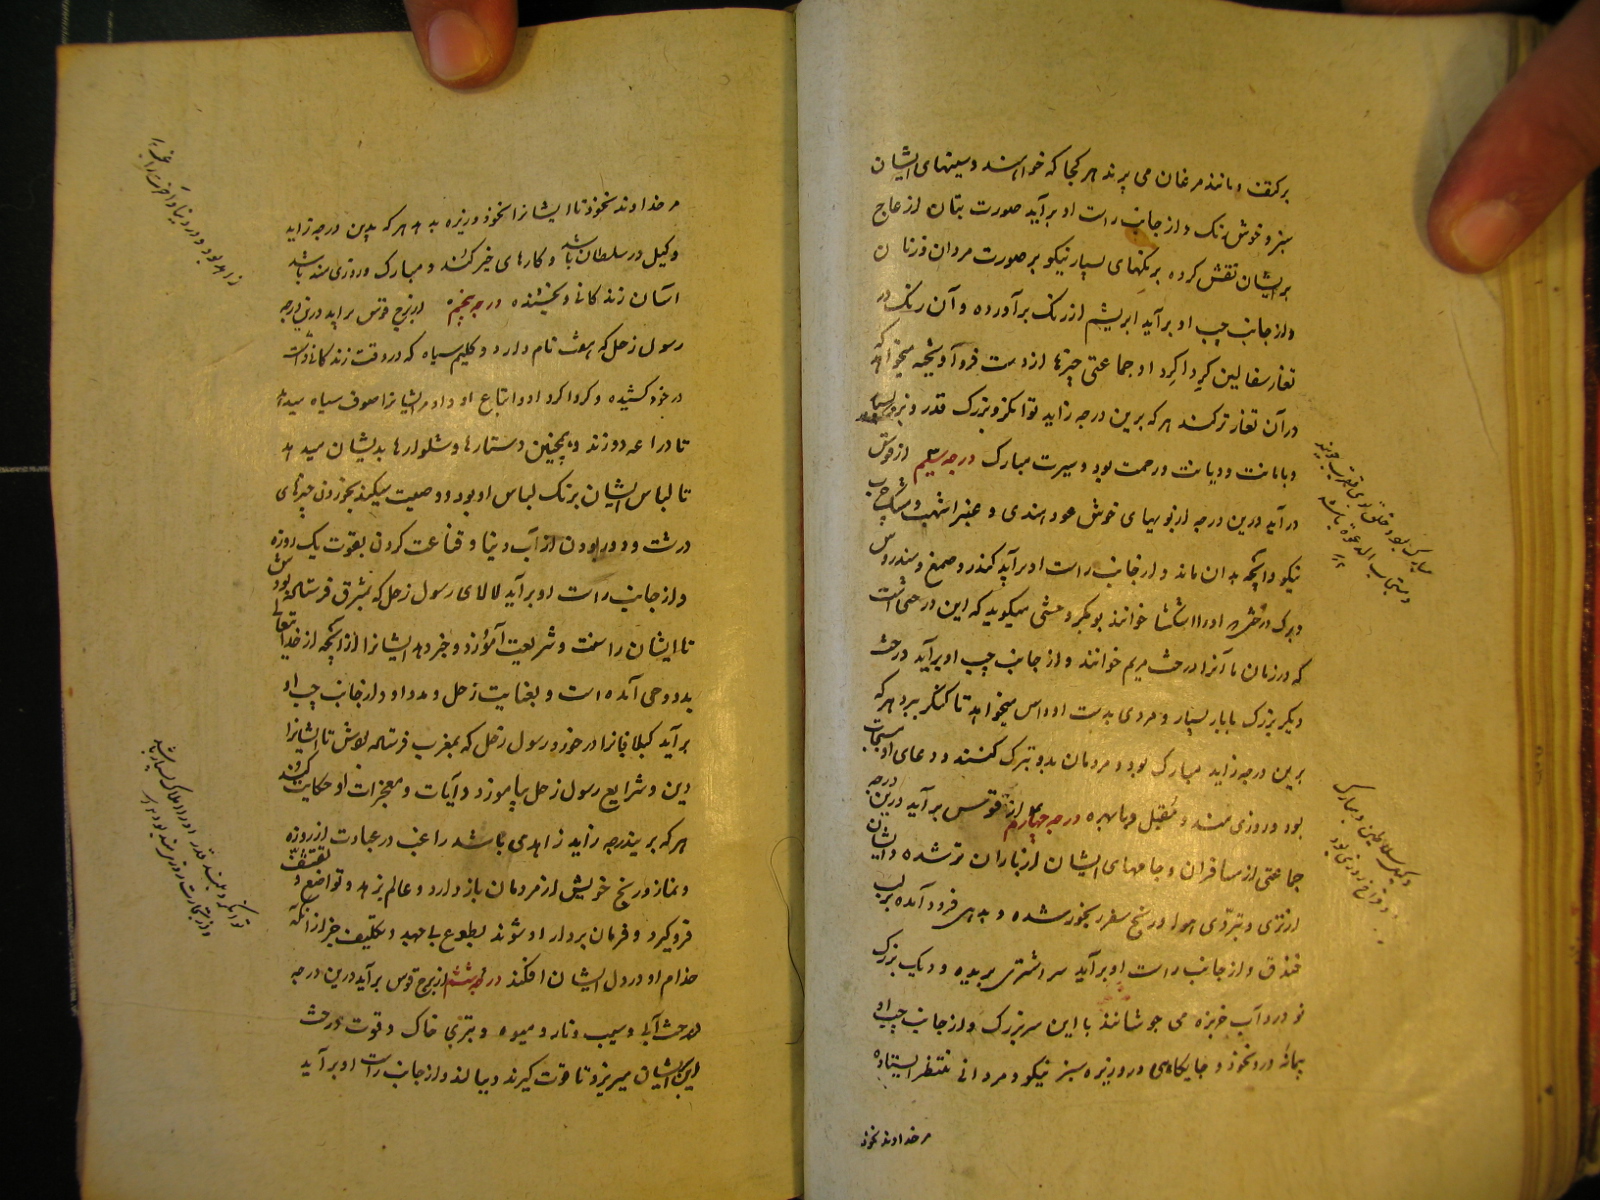 برکتف و مانند مرغان می پرند هر کجا که خواهند و سینهای ایشان
سبز و خوش رنک و از جانب راست او برآید صورت بتان از عاج
بریشان نقش کرده برنکهای بسیار نیکو بر صورت مردان و زنان
و از جانب چپ او برآید ابریشم از رنک برآورده و آن رنک در
تغار سفالین کرد اکرد او جماعتی چیزها از دست فرو آویخته میخواهند که
در آن تغار ترکنند هر که برین درجه زاید توانکر و بزرک قدر و نیکو سیر
و با امانت و دیانت و رحمت بود و سیرت مبارک درجه سیم از قوس
درآید درین درجه از بویهای خوش عود هندی و عنبر اشهب و مشک خوب
نیکو و آنچه بدان ماند و از جانب راست او برآید کندر و صمغ و سندروس
و برک درختی که او را خوانند بوبکر وحشی میکوید که این درختی است
که در زمان ما آنرا درخت مریم خوانند و از جانب چپ او برآید درخت
دیکر بزرک با بار بسیار و مردی بدست او داس میخواهد تا کنکر ببرد هر که
برین درجه زاید مبارک بود و مردمان بدو تبرک کنند و دعای او مستجاب
بود و روزی مند و مقبل و با بهره درجه چهارم از قوس برآید درین درجه
جماعتی از مسافران و جامهای ایشان از باران تر شده و ایشان
از تری و تیزی هوا و رنج سفر رنجور شده و بدهی فرود آمده بر لب
خندق و از جانب راست او برآید سر اشتری بریده و دیک بزرک
نو در و آب خربزه می جوشانند با این سر بزرک و از جانب چپ او
پیمانه درو نخود و جایکاهی درو زیره سبز نیکو و مردانی منتظر ایستاده
مر خداوند نخود
مبارک بود خلق بوی تقرب جویند
و مستجاب الدعوة باشد
وکیل سلاطین و مبارک
و فراخ روزی بود
مر خداوند نخود تا ایشانرا نخود و زیره بدهد هر که بدین درجه زاید
وکیل در سلطان باشد و کارهای خیر کند و مبارک و روزی مند باشد
آسان زندکانی و بخشنده درجه پنجم از برج قوس برآید درین درجه
رسول زحل که نام دارد و کلیم سیاه که در وقت زندکانی داشت
در خود کشیده و کرد اکرد او اتباع او و او مر ایشانرا صوف سیاه میدهد
تا دراعه دوزند و همچنین دستارها و شلوارها بدیشان میدهد
تا لباس ایشان برنک لباس او بود و وصیت میکند بخوردن چیزهای
درشت و دور بودن از آب دنیا و قناعت کردن بقوت یک روزه
و از جانب راست او برآید لالای رسول زحل که بمشرق فرستاده بودش
تا ایشان را سنت و شریعت آموزد و خبر دهد ایشانرا از آنچه از خدای تعالی
بدو وحی آمده است و بعنایت زحل و مدد او و از جانب چپ او
برآید کیلانیانرا در خورد رسول زحل که بمغرب فرستاده بودش تا ایشانرا
دین و شرایع رسول زحل بیاموزد و آیات و معجزات او حکایت کند
هر که بریندرجه زاید زاهدی باشد راغب در عبادت از روزه
و نماز و رنج خویش از مردمان باز دارد و عالم بزهد و تواضع و تقشف
فروکیرد و فرمان بردار او شوند بطوع بی جهد و تکلیف جز از آنکه
خدا مهر او در دل ایشان افکند درجه ششم از برج قوس برآید درین درجه
درخت آبی و سیب و نار و میوه و بتری خاک و قوت درخت
این ایشان میریزد تا قوت کیرند و ببالند و از جانب راست او برآید
زاهد بود و در دنیا و آخرت
توانکر و بلند قدر او را املاک بسیار باشد
و از تجارت روزی مند بود